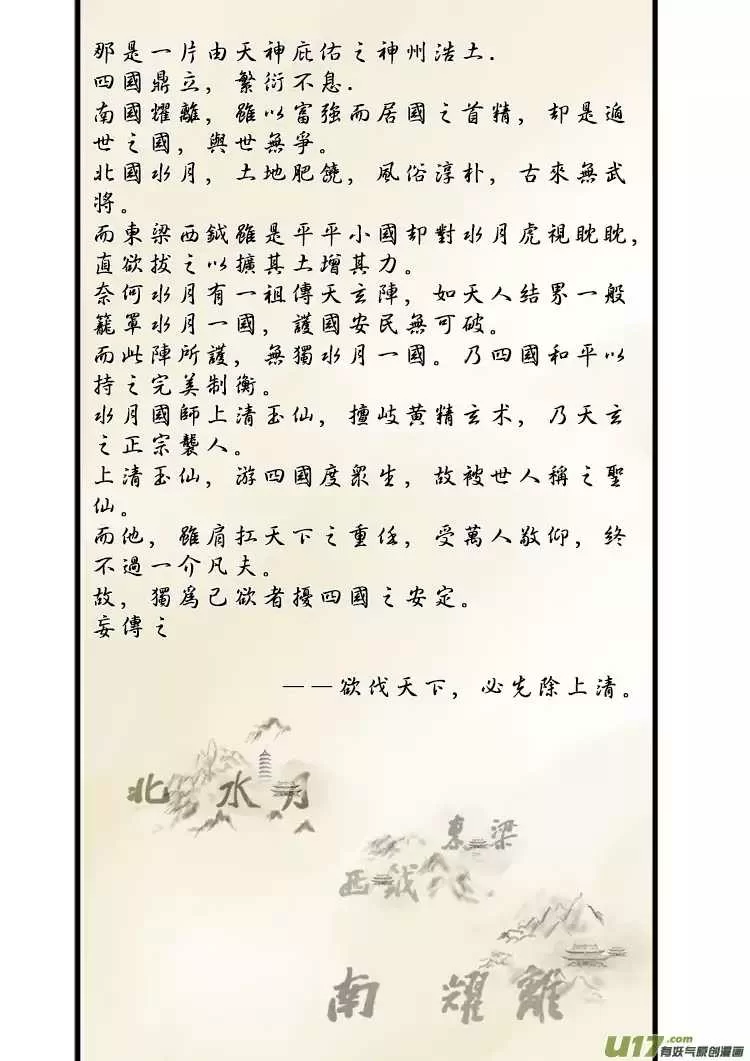 那是一片由天神庇佑之神州浩土.
四國鼎立，繁衍不息.
南國耀離，雖以富強而居國之首精，却是遁
世之國，與世無爭。
北國水月，土地肥饒，風俗淳朴，古來無武
將。
而東梁西鉞雖是平平小國却對水月虎視眈眈，
直欲拔之以擴其土增其力。
奈何水月有一祖傳天玄陣，如天人结界一般
籠罩水月一國，護國安民無可破。
而此陣所護，無獨水月一國。乃四國和平以
持之完美制衡。
水月國師上清玉仙，擅岐黄精玄术，乃天玄
之正宗襲人。
上清玉仙，游四國度衆生，故被世人稱之聖
仙。
而他，雖肩扛天下之重任，受萬人敬仰，终
不過一介凡夫。
故，獨爲己欲者擾四國之安定。
妄傳之
——欲伐天下，必先除上清。
北 水月
東梁
西鉞
南 耀離
U17.com
有妖气原创漫画